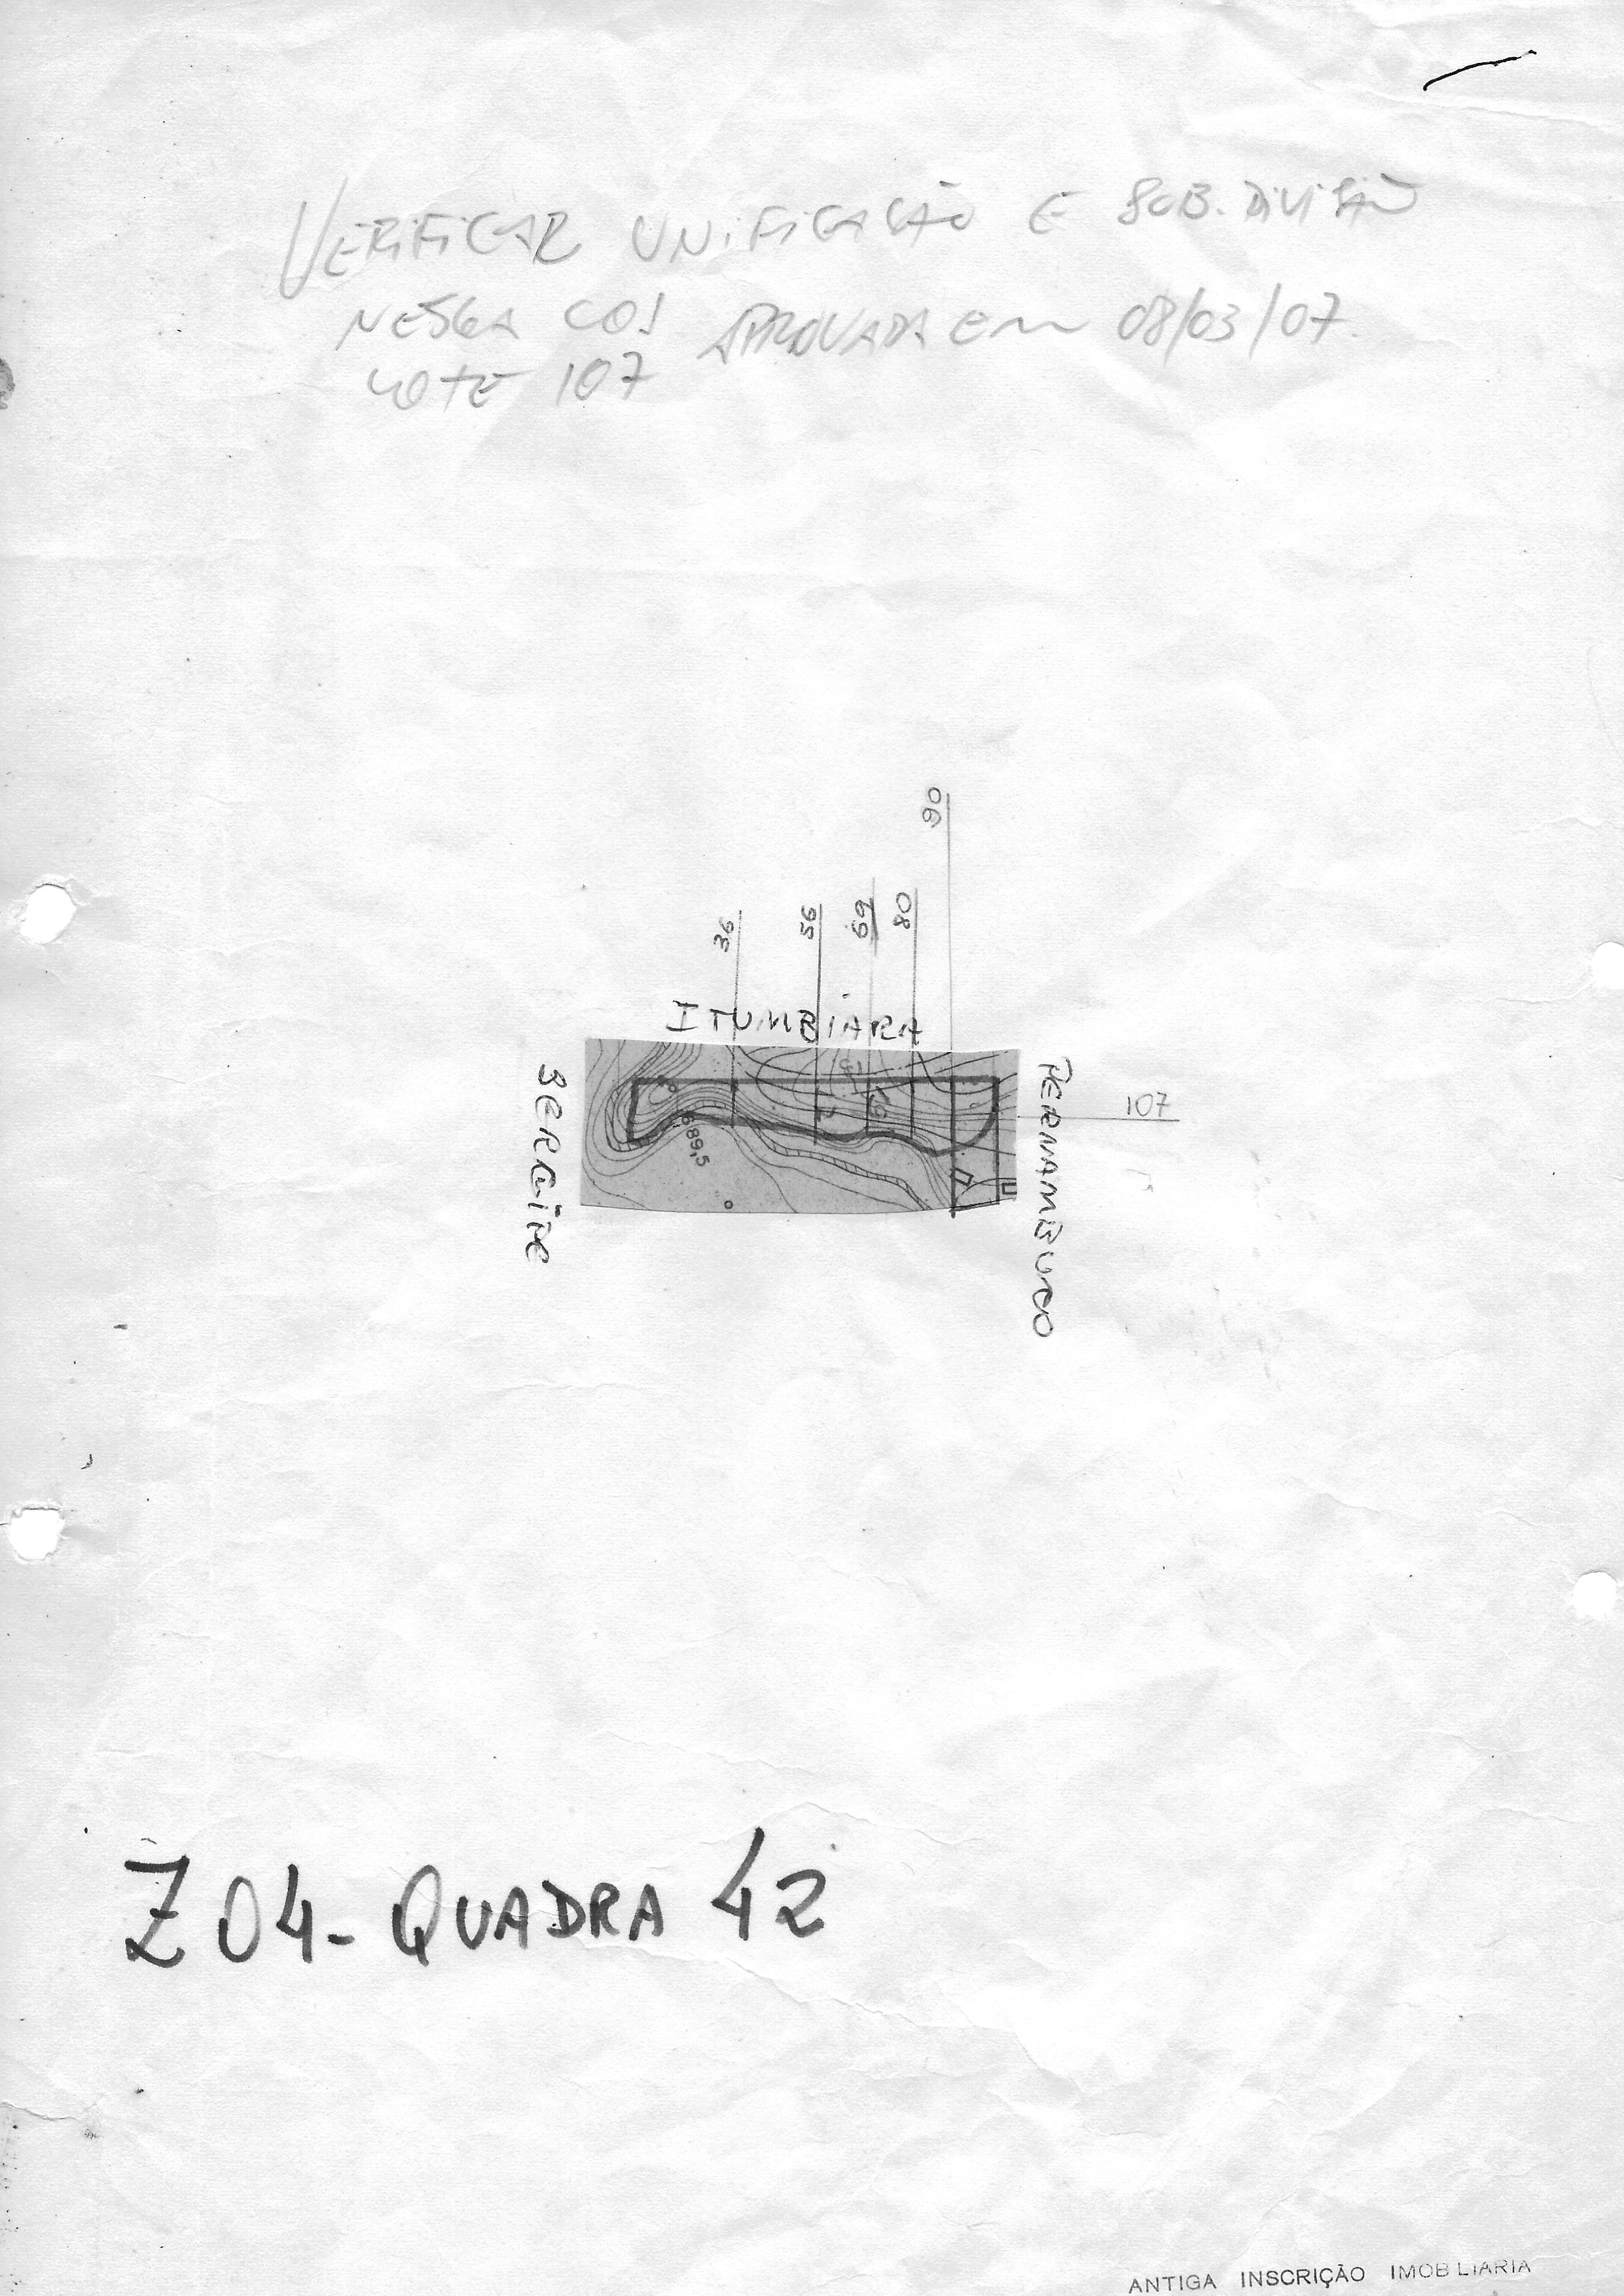 VERIFICAR UNIFICAÇÃO E SUB.DIVISÃO
NESSA APROVADA em 08/03/07.
LOTE 107
90
36
56
69
80
ITUMBIARA
SERGIPE
PERNAMBUCO
107
689,5
Z 04 - QUADRA 42
ANTIGA INSCRIÇÃO IMOBLIARIA